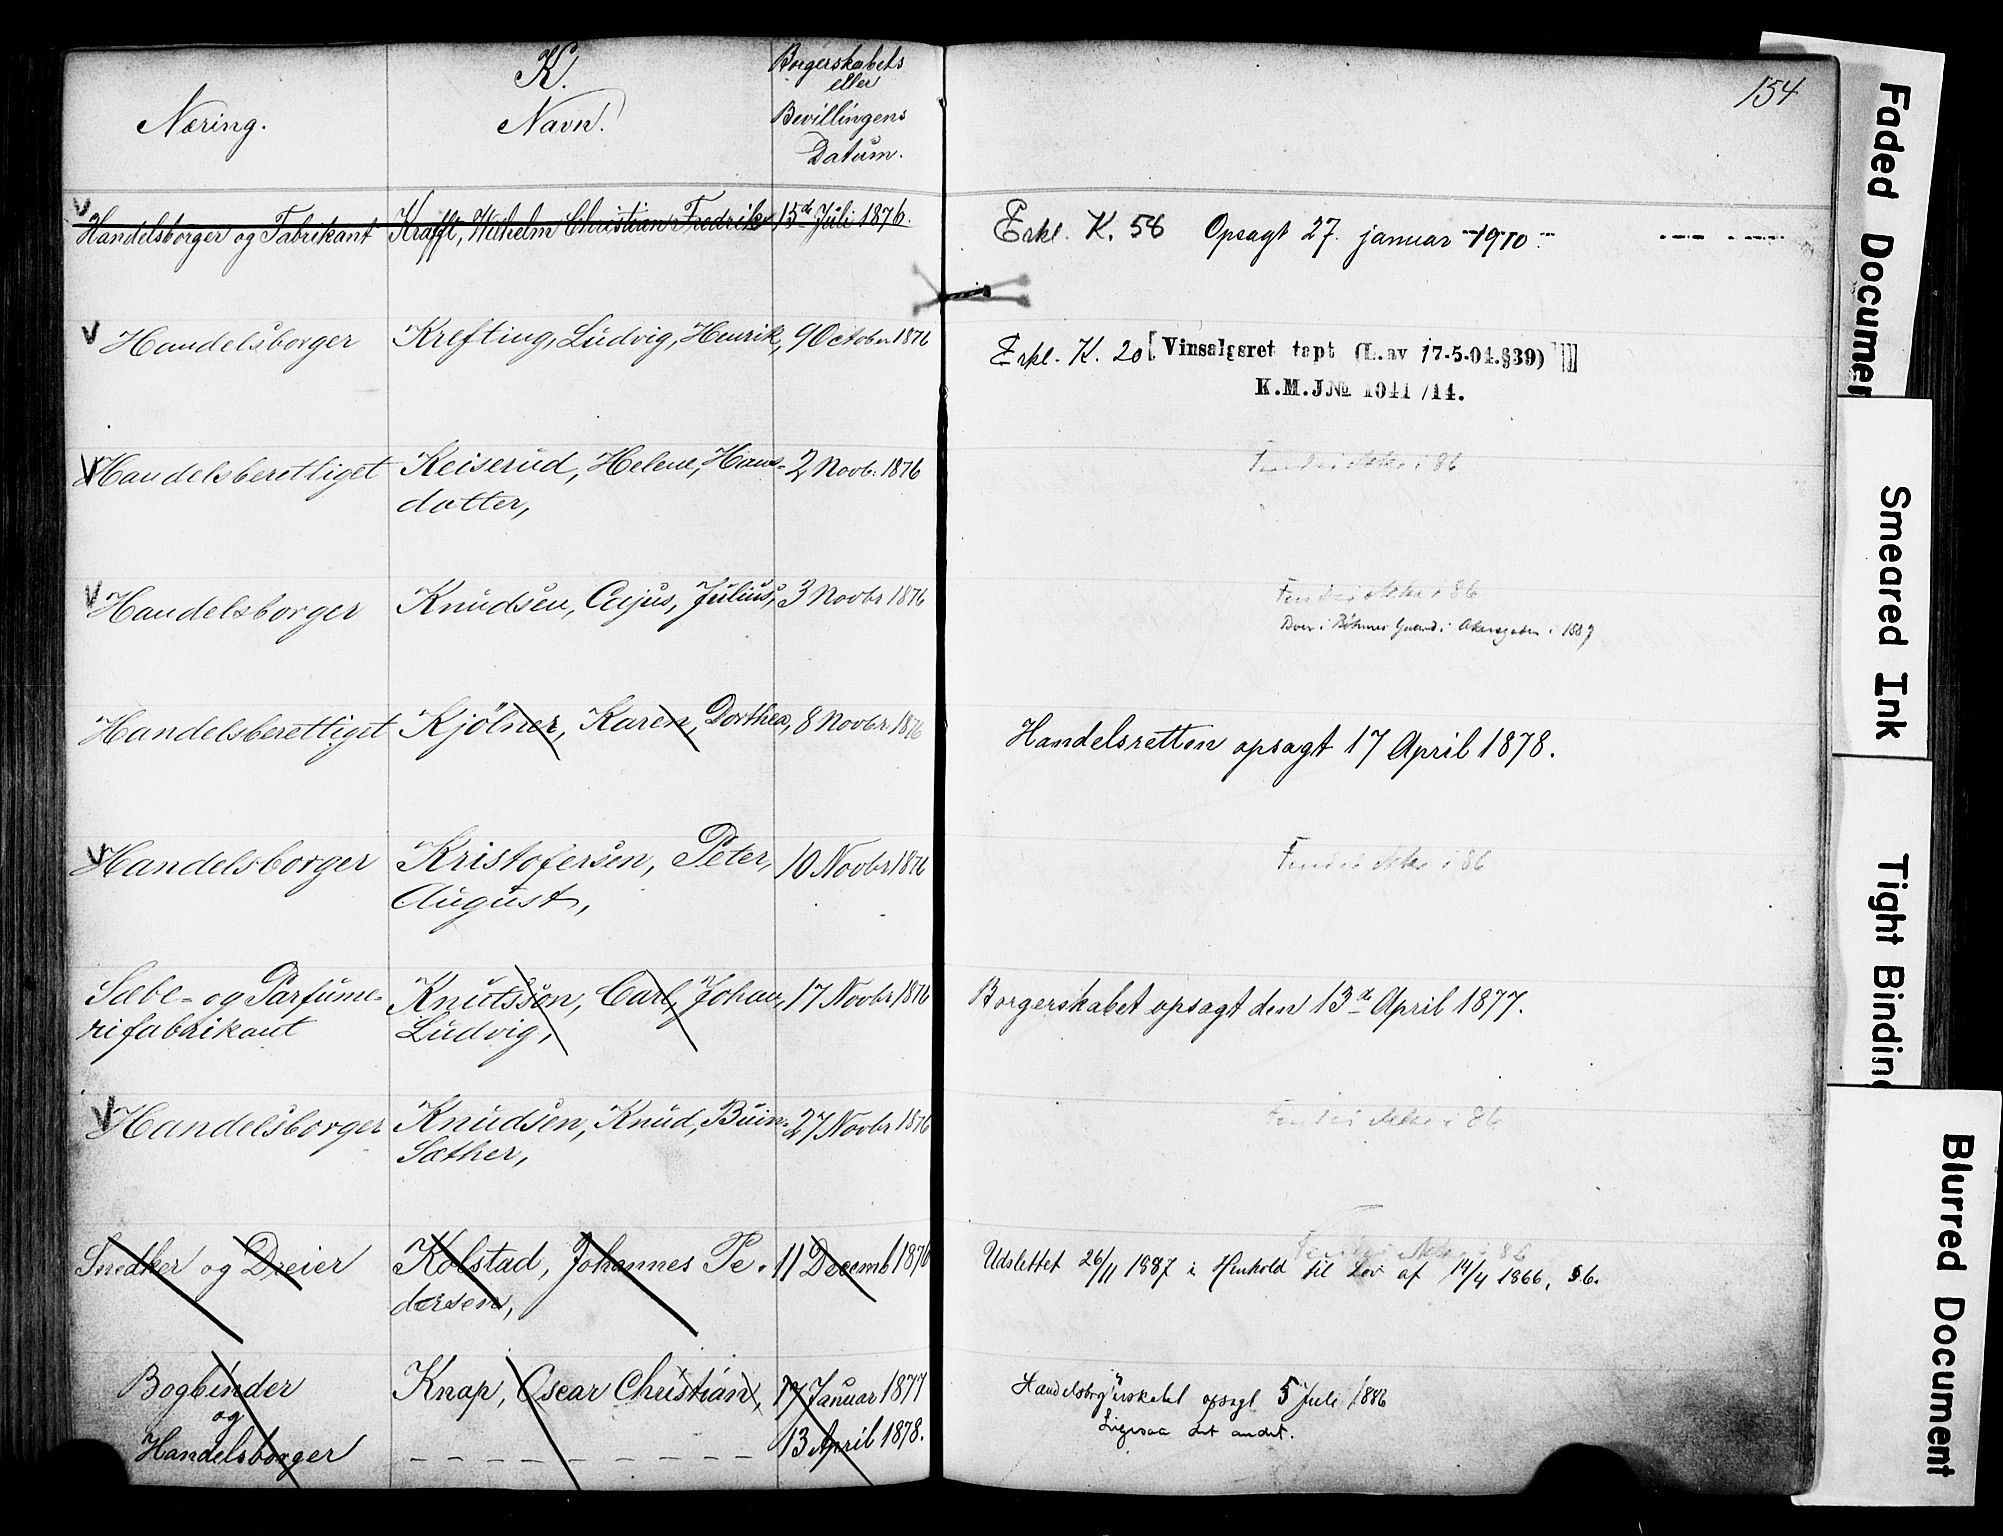 K.
Næring.
Navn.
Borgerskabets
eller
Bevillingens
Datum.
154
Handelsborger og Fabrikant Krafft, Wilhelm Christian Fredrik 15de Juli 1876.
Erkl. K. 58 Opsagt 27. januar 1910.
V Handelsborger Krefting, Ludvig, Henrik, 9 October 1876
Erkl. K. 20 [Vinsalgsret tapt (L. av 17-5-04. §39)]
K.M.J№ 1041/14.
V Handelsberettiget Keiserud, Helene, Hans- 2 Novb. 1876
datter,
i 86
V Handelsborger Knudsen, Cajus, Julius, 3 Novbr 1876
i 86
i 1887
Handelsberettiget Kjölner, Karen, Dorthea, 8 Novbr. 1876
Handelsretten opsagt 17 April 1878.
V Handelsborger Kristofersen, Peter, 10 Novbr 1876
August,
i 86
Sæbe- og Parfume- Knutsson, Carl, Johan, 17 Novbr 1876
rifabrikant Ludvig,
Borgerskabet opsagt den 13de April 1877.
V Handelsborger Knudsen, Knud, 27 Novbr 1876
Sæther,
i 86
Snedker og Dreier Kolstad, Johannes Pe- 11 Decemb 1876
dersen,
i 86
Udslettet 26/11 1887 i Henhold til Lov af 14/4 1866, §6.
Bogbinder Knap, Oscar Christian, 17 Januar 1877
og
Handelsborger 13 April 1878.
Handelsborgerskabet opsagt 5 Juli 1886
Ligesaa det andet.
Faded Documen
Smeared Ink
Tight Bindin
Blurred Document